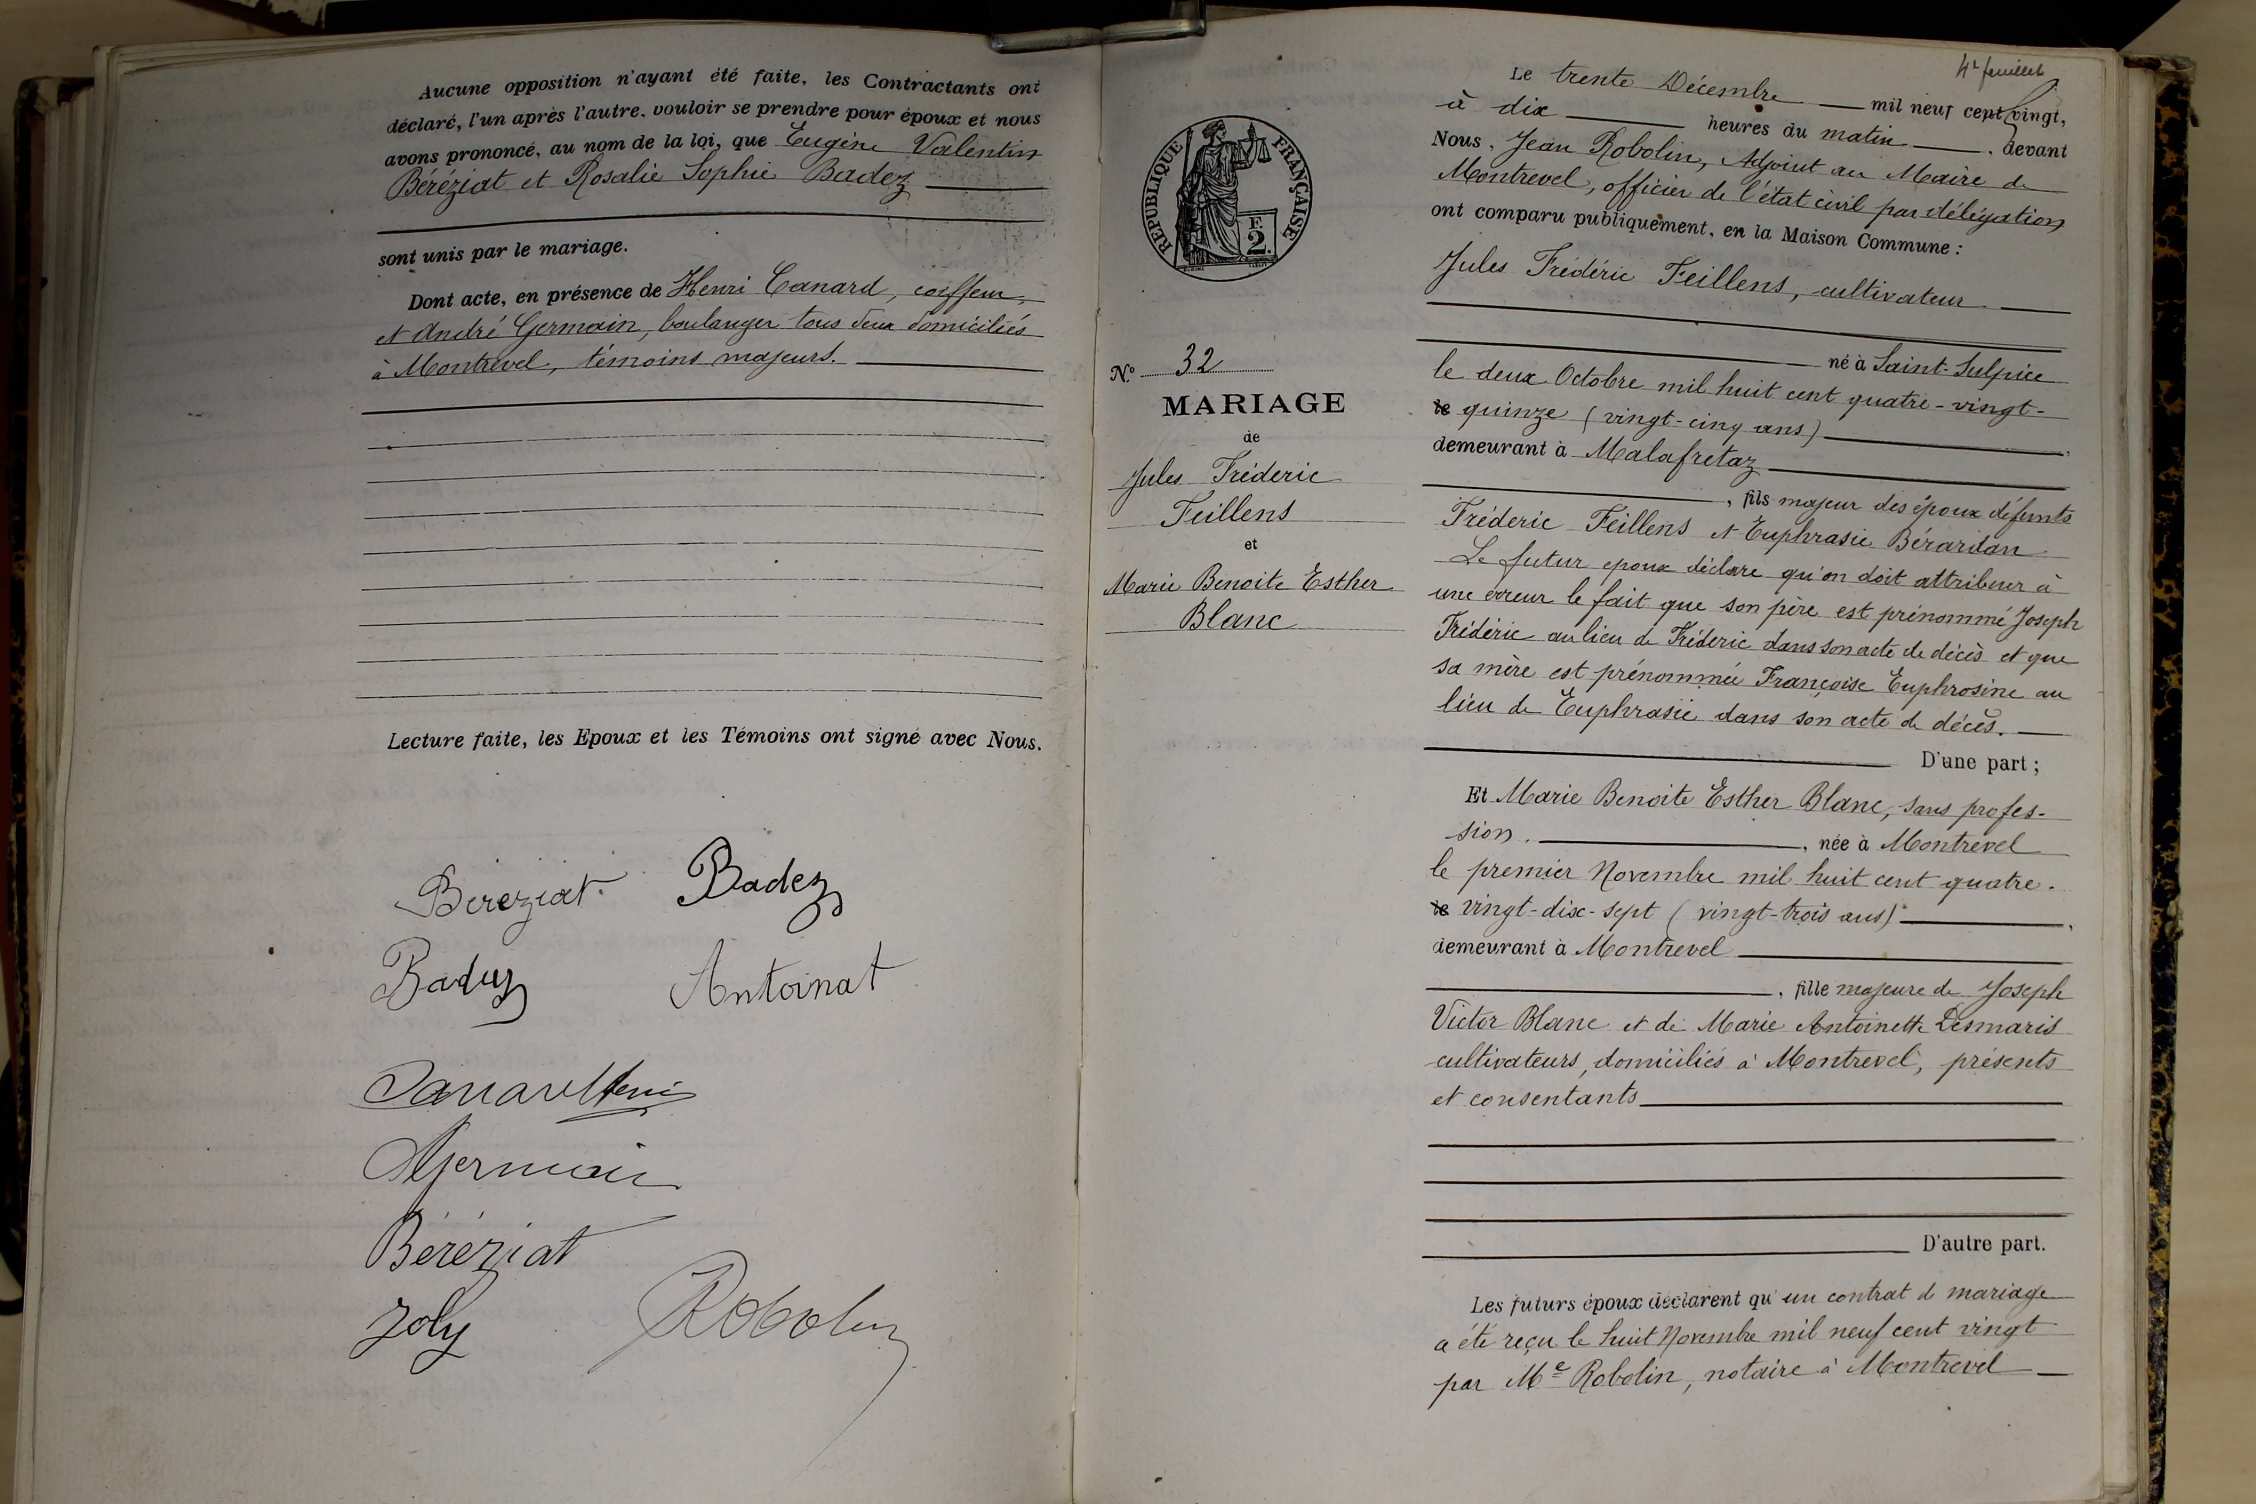 Aucune opposition n'ayant été faite, les Contractants ont
déclaré, l'un après l'autre, vouloir se prendre pour époux et nous
avons prononcé, au nom de la loi, que Eugène Valentin
Béréziat et Rosalie Sophie Badez
sont unis par le mariage.
Dont acte, en présence de Henri Canard, coiffeur,
et André Germain, boulanger tous deux domiciliés
à Montrevel, témoins majeurs.
Lecture faite, les Epoux et les Témoins ont signé avec Nous.
Béréziat Badez
Badez Antoinat
Canard Henri
AGermain
Béréziat
Joly Robolin
RÉPUBLIQUE FRANÇAISE
E
2.
N.° 32
MARIAGE
de
Jules Fréderic
Feillens
et
Marie Benoite Esther
Blanc
4e feuillet
Le trente Décembre mil neuf cent vingt,
à dix heures du matin, devant
Nous, Jean Robolin, Adjoint au Maire de
Montrevel, officier de l'état civil par délégation
ont comparu publiquement, en la Maison Commune :
Jules Frédéric Feillens, cultivateur
né à Saint-Sulpice
le deux Octobre mil huit cent quatre-vingt-
le quinze (vingt-cinq ans)
demeurant à Malafretaz
, fils majeur des époux défunts
Fréderic Feillens et Euphrasie Bérardan
Le futur epoux déclare qu'on doit attribuer à
une erreur le fait que son père est prénommé Joseph
Frédéric au lieu de Fréderic dans son acte de décès et que
sa mère est prénommée Françoise Euphrosine au
lieu de Euphrasie dans son acte de décès.
D'une part ;
Et Marie Benoite Esther Blanc, sans profes-
sion. , née à Montrevel
le premier Novembre mil huit cent quatre-
le vingt-dix-sept (vingt-trois ans)
demeurant à Montrevel
, fille majeure de Joseph
Victor Blanc et de Marie Antoinette Desmaris
cultivateurs, domiciliés à Montrevel, présents
et consentants
D'autre part.
Les futurs époux déclarent qu'un contrat de mariage
a été reçu le huit Novembre mil neuf cent vingt
par Me Robolin, notaire à Montrevel